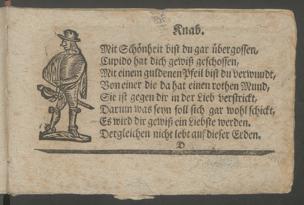 Knab.
Mit Schönheit bist du gar übergossen,
Cupido hat dich gewiß geschossen,
Mit einem guldenen Pfeil bist du verwundt,
Von einer die da hat einen rothen Mund,
Sie ist gegen dir in der Lieb verstrickt,
Darum was seyn soll sich gar wohl schickt,
Es wird dir gewiß ein Liebste werden.
Dergleichen nicht lebt auf dieser Erden.
D